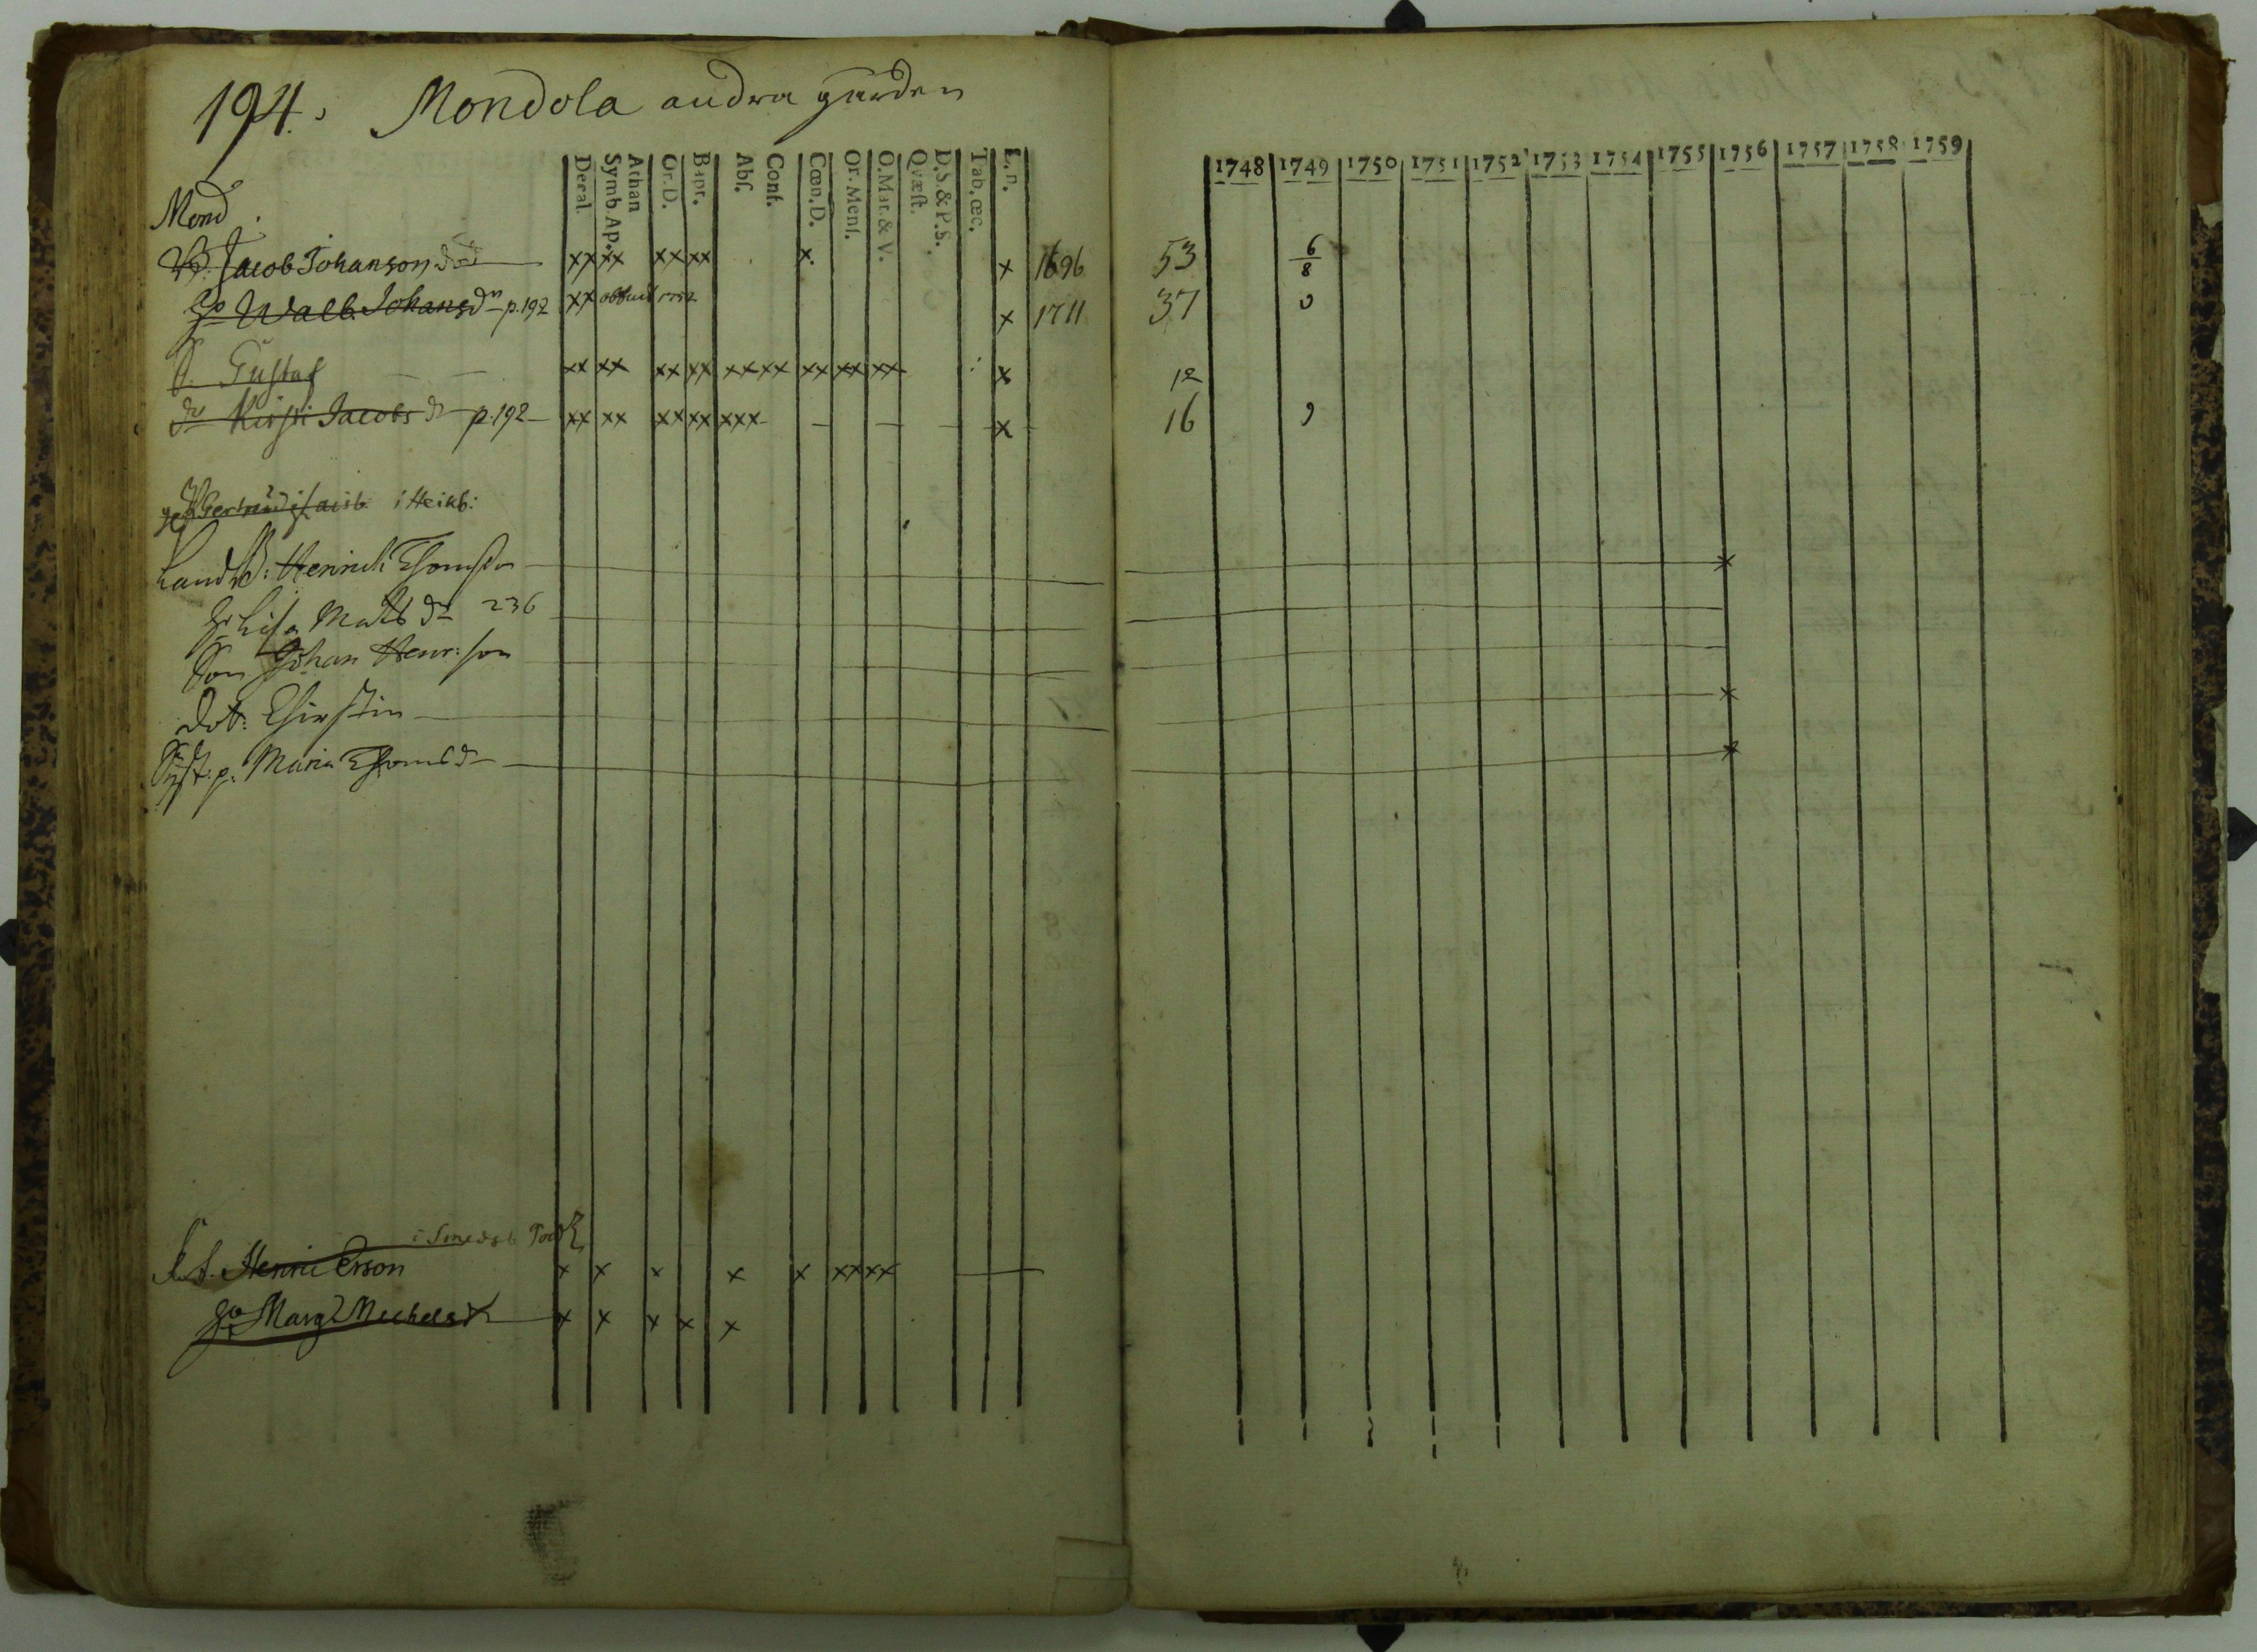 194. Mondola andra gården
Decal. Symb. Ap. Athan Or. D. Bapt. Abſ. Conf. Cœn. D. Or. Menſ. O. Mat. & V. Qvæſt. D. S. & P. S. Tab. œc. L. n.
1748 1749 1750 1751 1752 1753 1754 1755 1756 1757 1758 1759
Mond.
B. Jacob Johanson död xx xx xx xx x x 1696 53 6/8
H:o Walb. Johans dr p. 192 xx x 1711 37
S. Gustaf xx xx xx xx xxxx xx xx xx x 12
dr Kirsti Jacobs dr p. 192 xx xx xx xx xxx x 16 9
Gertrud Jacob i Heikb:
Landb: Henrich Thomson x
Hr Lisa Mats dr 236
Son Johan Henr: son
Dot: Chirstin x
Syst: p. Maria Thoms dr x
i Smedsb
Henric Erson x x x x x xx xx
H:o Marg Michels dr x x x x x